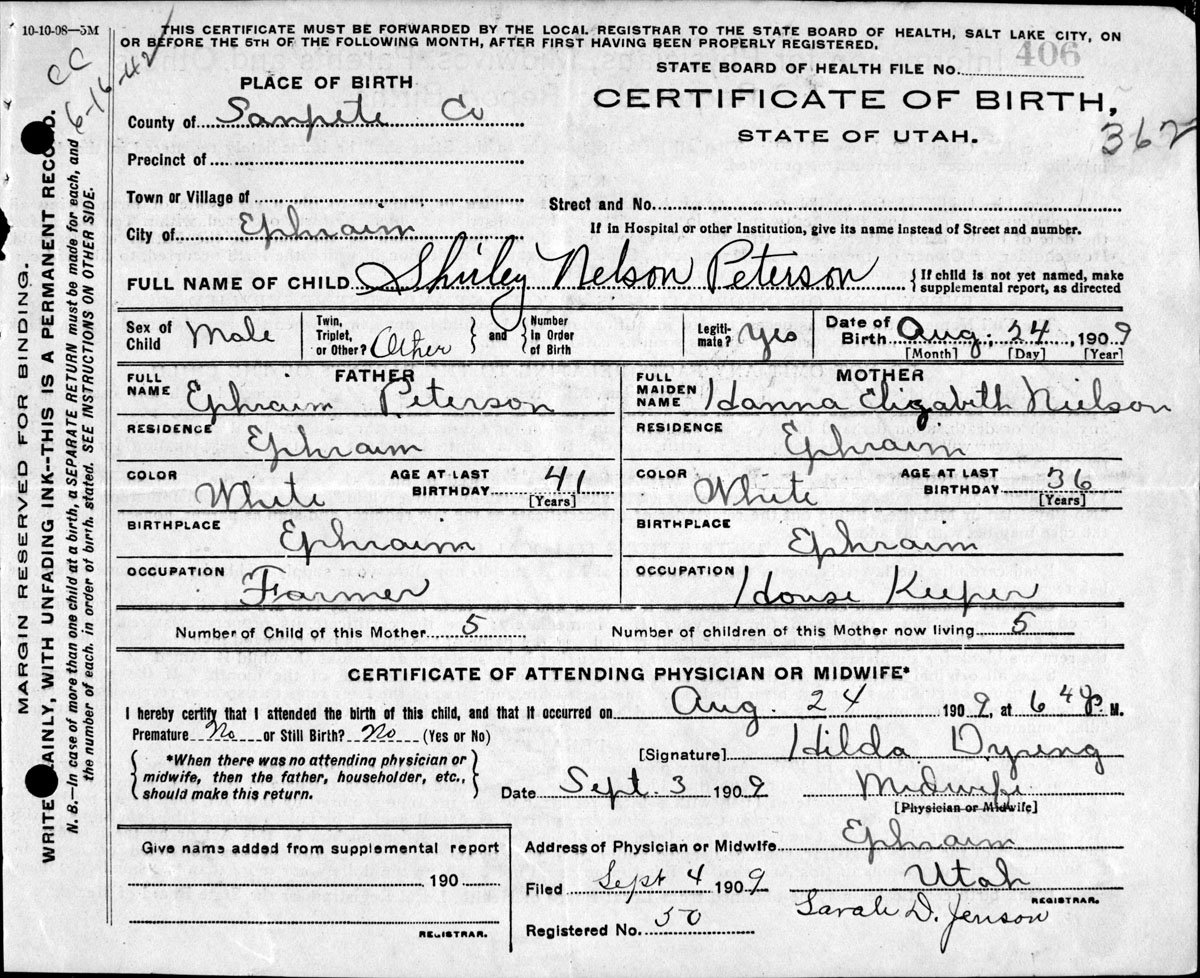 10-10-08—5M
THIS CERTIFICATE MUST BE FORWARDED BY THE LOCAL REGISTRAR TO THE STATE BOARD OF HEALTH, SALT LAKE CITY, ON
OR BEFORE THE 5TH OF THE FOLLOWING MONTH, AFTER FIRST HAVING BEEN PROPERLY REGISTERED.
CC
6-16-42
STATE BOARD OF HEALTH FILE NO. 406
PLACE OF BIRTH
CERTIFICATE OF BIRTH,
STATE OF UTAH.
362
County of Sanpete Co
Precinct of
Town or Village of
Street and No.
City of Ephraim
If in Hospital or other Institution, give its name instead of Street and number.
FULL NAME OF CHILD Shirley Nelson Peterson {If child is not yet named, make
supplemental report, as directed
Sex of Child Male
Twin, Triplet, or Other? Other } and { Number In Order of Birth
Legiti-mate? Yes
Date of Birth Aug, 24, 1909
[Month] [Day] [Year]
FATHER
FULL NAME Ephraim Peterson
RESIDENCE Ephraim
COLOR White AGE AT LAST BIRTHDAY 41 [Years]
BIRTHPLACE Ephraim
OCCUPATION Farmer
MOTHER
FULL MAIDEN NAME Hanna Elizabith Nielson
RESIDENCE Ephraim
COLOR White AGE AT LAST BIRTHDAY 36 [Years]
BIRTHPLACE Ephraim
OCCUPATION House Keeper
Number of Child of this Mother 5 Number of children of this Mother now living 5
CERTIFICATE OF ATTENDING PHYSICIAN OR MIDWIFE*
I hereby certify that I attended the birth of this child, and that it occurred on Aug. 24 1909, at 6 40 P. M.
Premature No or Still Birth? No (Yes or No)
[Signature] Hilda Dyring
{ *When there was no attending physician or
midwife, then the father, householder, etc.,
should make this return. }
Date Sept 3 1909 Midwife
[Physician or Midwife]
Address of Physician or Midwife Ephraim
Utah
Filed Sept 4 1909
Sarah D. Jenson
REGISTRAR.
Registered No. 50
Give name added from supplemental report
, 190
REGISTRAR.
MARGIN RESERVED FOR BINDING.
WRITE AINLY, WITH UNFADING INK--THIS IS A PERMANENT RECORD.
N. B.—In case of more than one child at a birth, a SEPARATE RETURN must be made for each, and
the number of each, in order of birth, stated. SEE INSTRUCTIONS ON OTHER SIDE.